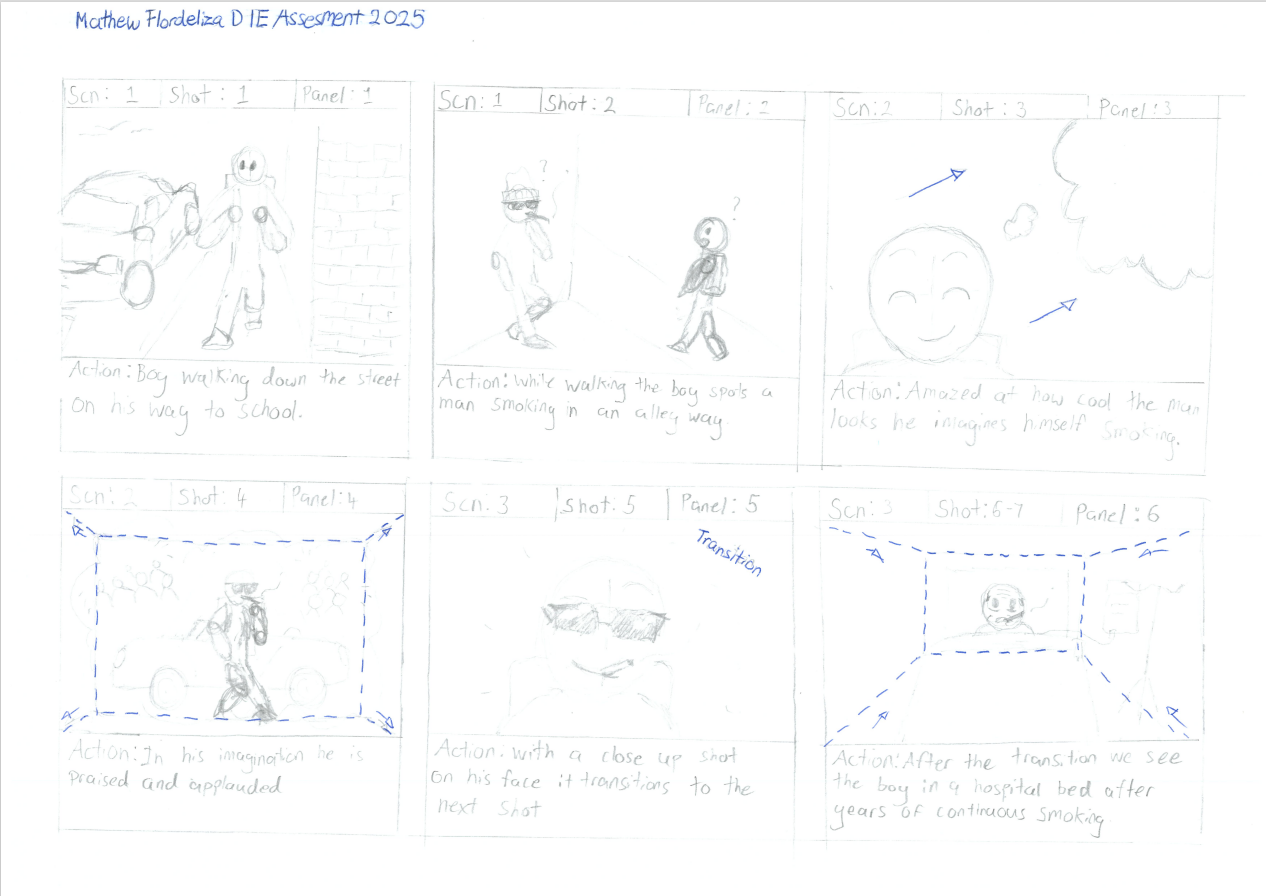 Mathew Flordeliza D IE Assesment 2025
Scn: 1 Shot: 1 Panel: 1
?
?
Action: Boy walking down the street
on his way to school.
Scn: 1 Shot: 2 Panel: 2
Action: While walking the boy spots a
man smoking in an alley way.
Scn: 2 Shot: 3 Panel: 3
Action: Amazed at how cool the man
looks he imagines himself smoking.
Scn: 2 Shot: 4 Panel: 4
Action: In his imagination he is
praised and applauded
Scn: 3 Shot: 5 Panel: 5
Transition
Action: with a close up shot
on his face it transitions to the
next shot
Scn: 3 Shot: 6-7 Panel: 6
Action: After the transition we see
the boy in a hospital bed after
years of continuous smoking.